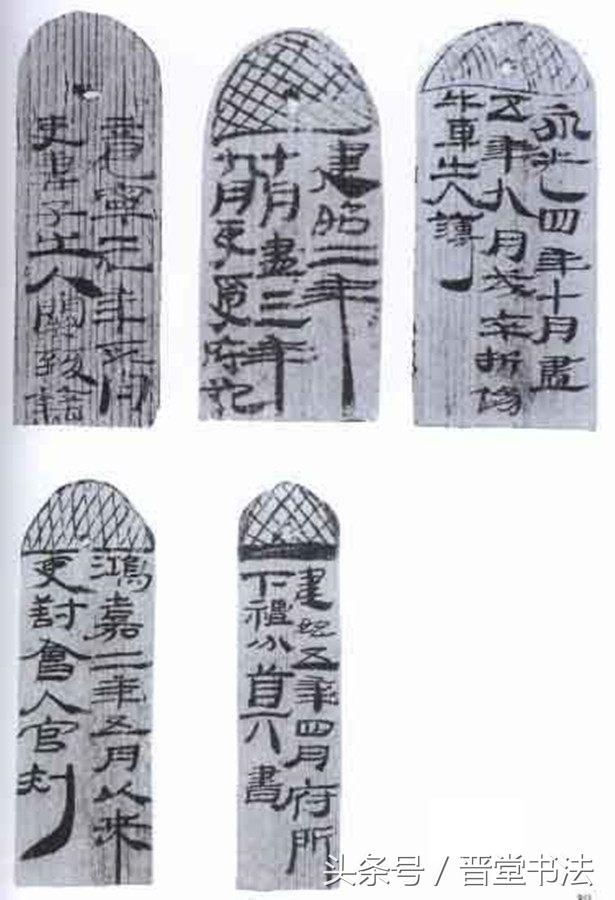 竟寧元年正月
吏妻子出入關致籍
建昭二年
十月盡三年
九月吏受府記
永光四年十月盡
五年八月戍卒折傷
牛車出入簿
鴻嘉二年五月以來
吏對會入官刺
建始五年四月府所
下禮分算書
头条号/晋堂书法